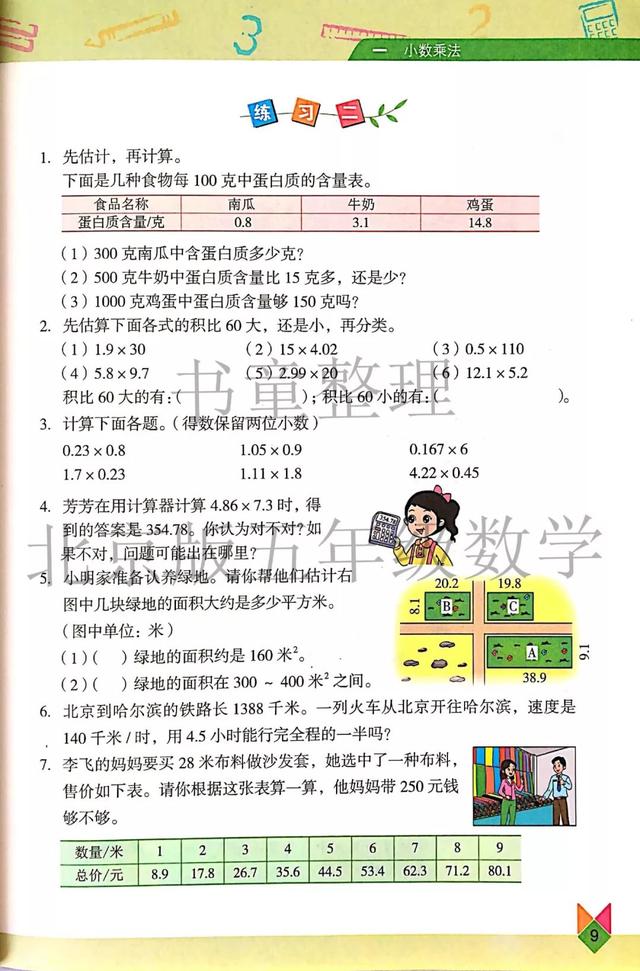 一 小数乘法
练习二
1. 先估计，再计算。
下面是几种食物每 100 克中蛋白质的含量表。
食品名称 南瓜 牛奶 鸡蛋
蛋白质含量/克 0.8 3.1 14.8
（1）300 克南瓜中含蛋白质多少克？
（2）500 克牛奶中蛋白质含量比 15 克多，还是少？
（3）1000 克鸡蛋中蛋白质含量够 150 克吗？
2. 先估算下面各式的积比 60 大，还是小，再分类。
（1）1.9 × 30 （2）15 × 4.02 （3）0.5 × 110
（4）5.8 × 9.7 （5）2.99 × 20 （6）12.1 × 5.2
积比 60 大的有：（ ）；积比 60 小的有：（ ）。
书童整理
3. 计算下面各题。（得数保留两位小数）
0.23 × 0.8 1.05 × 0.9 0.167 × 6
1.7 × 0.23 1.11 × 1.8 4.22 × 0.45
4. 芳芳在用计算器计算 4.86 × 7.3 时，得
到的答案是 354.78。你认为对不对？如
果不对，问题可能出在哪里？
354.78
北京版五年级数学
5. 小明家准备认养绿地。请你帮他们估计右
图中几块绿地的面积大约是多少平方米。
（图中单位：米）
（1）（ ）绿地的面积约是 160 米²。
（2）（ ）绿地的面积在 300 ～ 400 米² 之间。
20.2 19.8
8.1 B C
A 9.1
38.9
6. 北京到哈尔滨的铁路长 1388 千米。一列火车从北京开往哈尔滨，速度是
140 千米 / 时，用 4.5 小时能行完全程的一半吗？
7. 李飞的妈妈要买 28 米布料做沙发套，她选中了一种布料，
售价如下表。请你根据这张表算一算，他妈妈带 250 元钱
够不够。
数量/米 1 2 3 4 5 6 7 8 9
总价/元 8.9 17.8 26.7 35.6 44.5 53.4 62.3 71.2 80.1
9